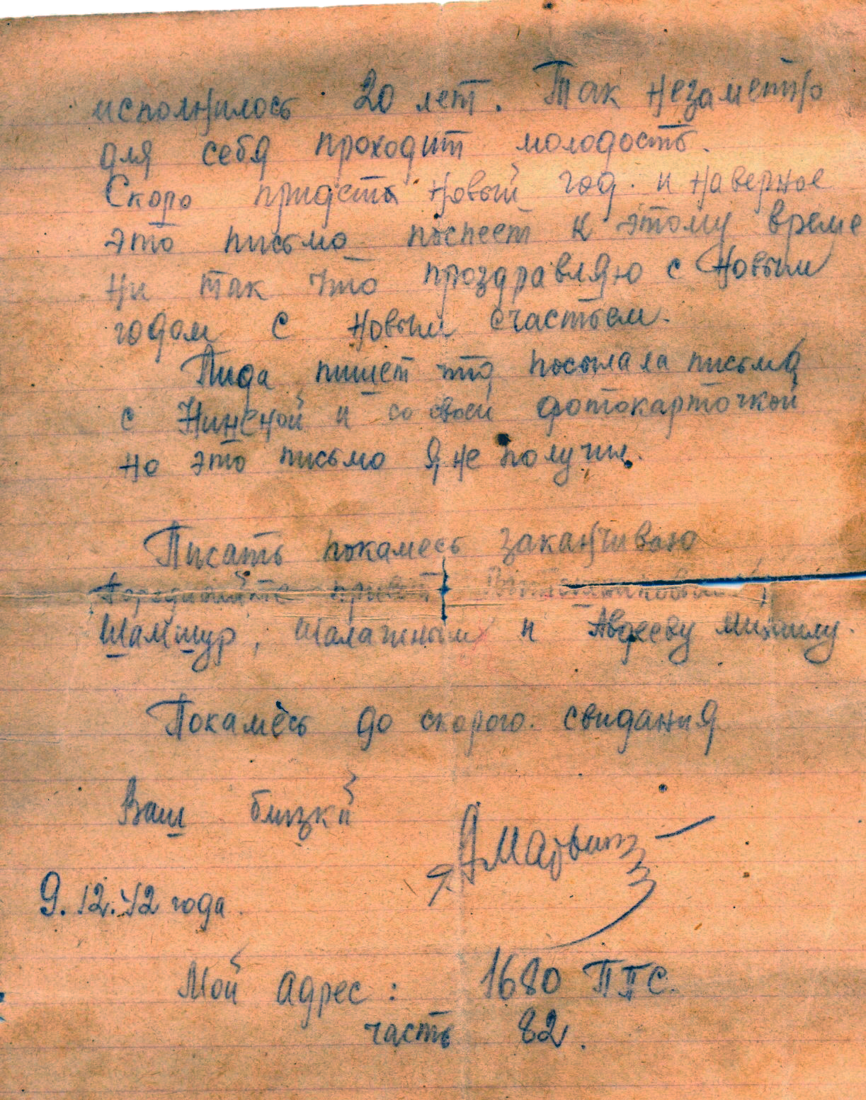 исполнилось 20 лет. Так незаметно
для себя проходит молодость.
Скоро придеть новый год. и наверное
это письмо поспеет к этому време
ни так что проздравляю с Новым
годом с новым счастьем.
Лида пишет что посылала письмо
с Нинсной и со своей фотокарточкой
но это письмо я не получил.
Писать покамесь заканчиваю
Передавайте привет
Шамшур, Шалагиным и Авдееву Михаилу.
Покамесь до скорого. свидания
Ваш близкй
9.12.42 года.
Мой адрес: 1680 ППС.
часть 82.